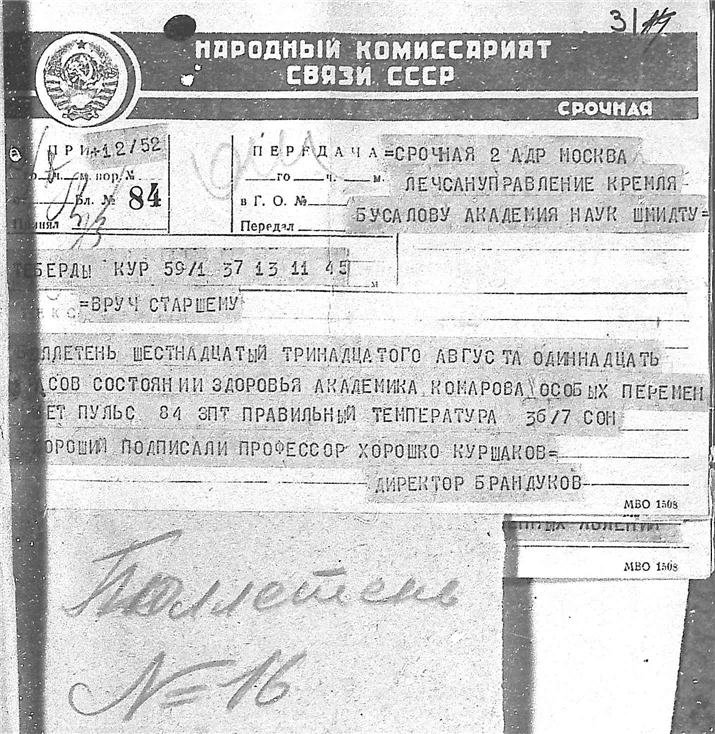 3/14
НАРОДНЫЙ КОМИССАРИАТ
СВЯЗИ СССР
СРОЧНАЯ
ПРИ 12/52
ПЕРЕДАЧА =СРОЧНАЯ 2 АДР МОСКВА
го ч. м. пор. №
го ч. м. ЛЕЧСАНУПРАВЛЕНИЕ КРЕМЛЯ
Бл. № 84
в Г. О. № БУСАЛОВУ АКАДЕМИЯ НАУК ШМИДТУ=
Принял
Передал
ТЕБЕРДЫ КУР 59/1 37 13 11 45
м
=ВРУЧ СТАРШЕМУ
БЮЛЛЕТЕНЬ ШЕСТНАДЦАТЫЙ ТРИНАДЦАТОГО АВГУСТА ОДИННАДЦАТЬ
ЧАСОВ СОСТОЯНИИ ЗДОРОВЬЯ АКАДЕМИКА КОМАРОВА ОСОБЫХ ПЕРЕМЕН
НЕТ ПУЛЬС 84 ЗПТ ПРАВИЛЬНЫЙ ТЕМПЕРАТУРА 36/7 СОН
ХОРОШИЙ ПОДПИСАЛИ ПРОФЕССОР ХОРОШКО КУРШАКОВ=
ДИРЕКТОР БРАНДУКОВ
МВО 1508
ЯВЛЕНИЙ
МВО 1508
Бюллетень
№ 16